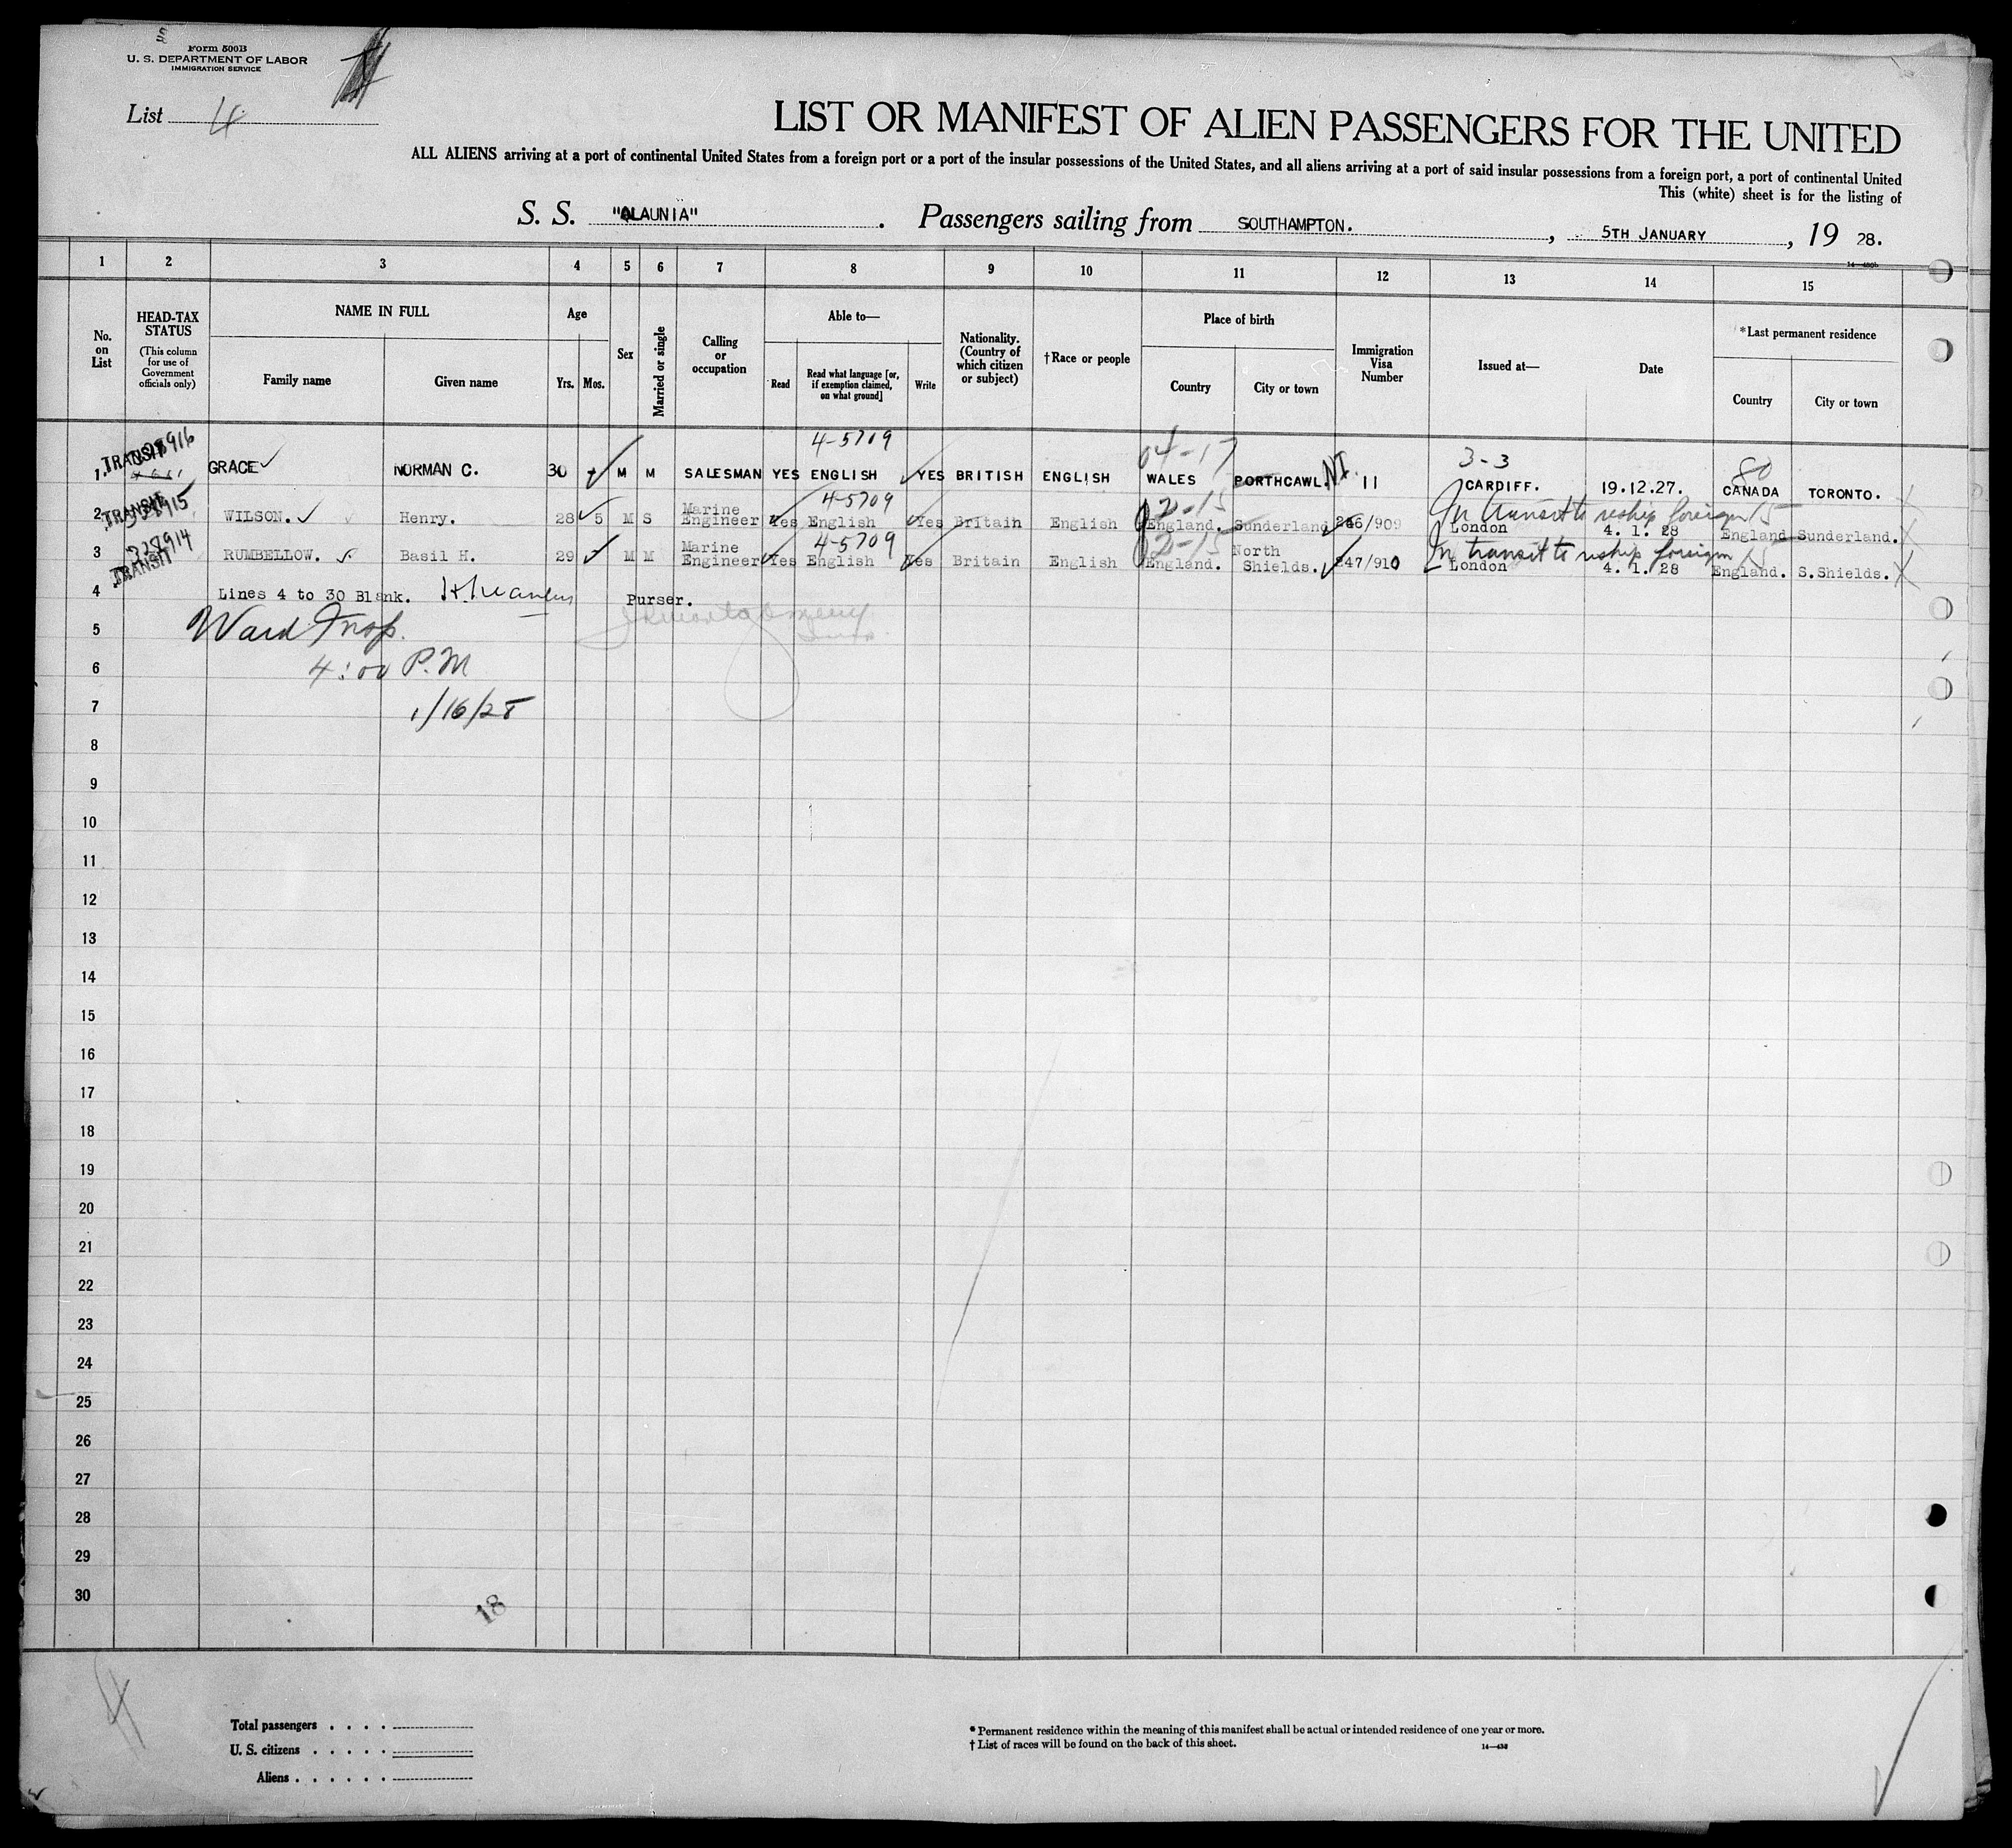 Form 500B
U. S. DEPARTMENT OF LABOR
IMMIGRATION SERVICE
List 4
LIST OR MANIFEST OF ALIEN PASSENGERS FOR THE UNITED
ALL ALIENS arriving at a port of continental United States from a foreign port or a port of the insular possessions of the United States, and all aliens arriving at a port of said insular possessions from a foreign port, a port of continental United
This (white) sheet is for the listing of
S. S. "ALAUNIA" . Passengers sailing from SOUTHAMPTON. , 5TH JANUARY , 19 28.
1 2 3 4 5 6 7 8 9 10 11 12 13 14 15
No. on List
HEAD-TAX STATUS
(This column for use of Government officials only)
NAME IN FULL
Family name Given name
Age
Yrs. Mos.
Sex
Married or single
Calling or occupation
Able to—
Read
Read what language [or, if exemption claimed, on what ground]
Write
Nationality. (Country of which citizen or subject)
†Race or people
Place of birth
Country City or town
Immigration Visa Number
Issued at—
Date
*Last permanent residence
Country City or town
4-5709 04-17 3-3 80
1 TRANSIT GRACE NORMAN C. 30 M M SALESMAN YES ENGLISH YES BRITISH ENGLISH WALES PORTHCAWL. 11 CARDIFF. 19.12.27. CANADA TORONTO.
4-5709 In transit to reship foreign
2 TRANSIT WILSON. Henry. 28 5 M S Marine Engineer Yes English Yes Britain English England. Sunderland 246/909 London 4. 1. 28 England Sunderland.
4-5709 In transit to reship foreign
3 338914 TRANSIT RUMBELLOW. Basil H. 29 M M Marine Engineer Yes English Yes Britain English England. North Shields. 247/910 London 4. 1. 28 England. S.Shields.
4 Lines 4 to 30 Blank. Purser.
5 Ward Insp.
6 4:00 P.M
7 1/16/28
8
9
10
11
12
13
14
15
16
17
18
19
20
21
22
23
24
25
26
27
28
29
30
18
4
Total passengers . . . .
U. S. citizens . . . . .
Aliens . . . . . .
* Permanent residence within the meaning of this manifest shall be actual or intended residence of one year or more.
† List of races will be found on the back of this sheet.